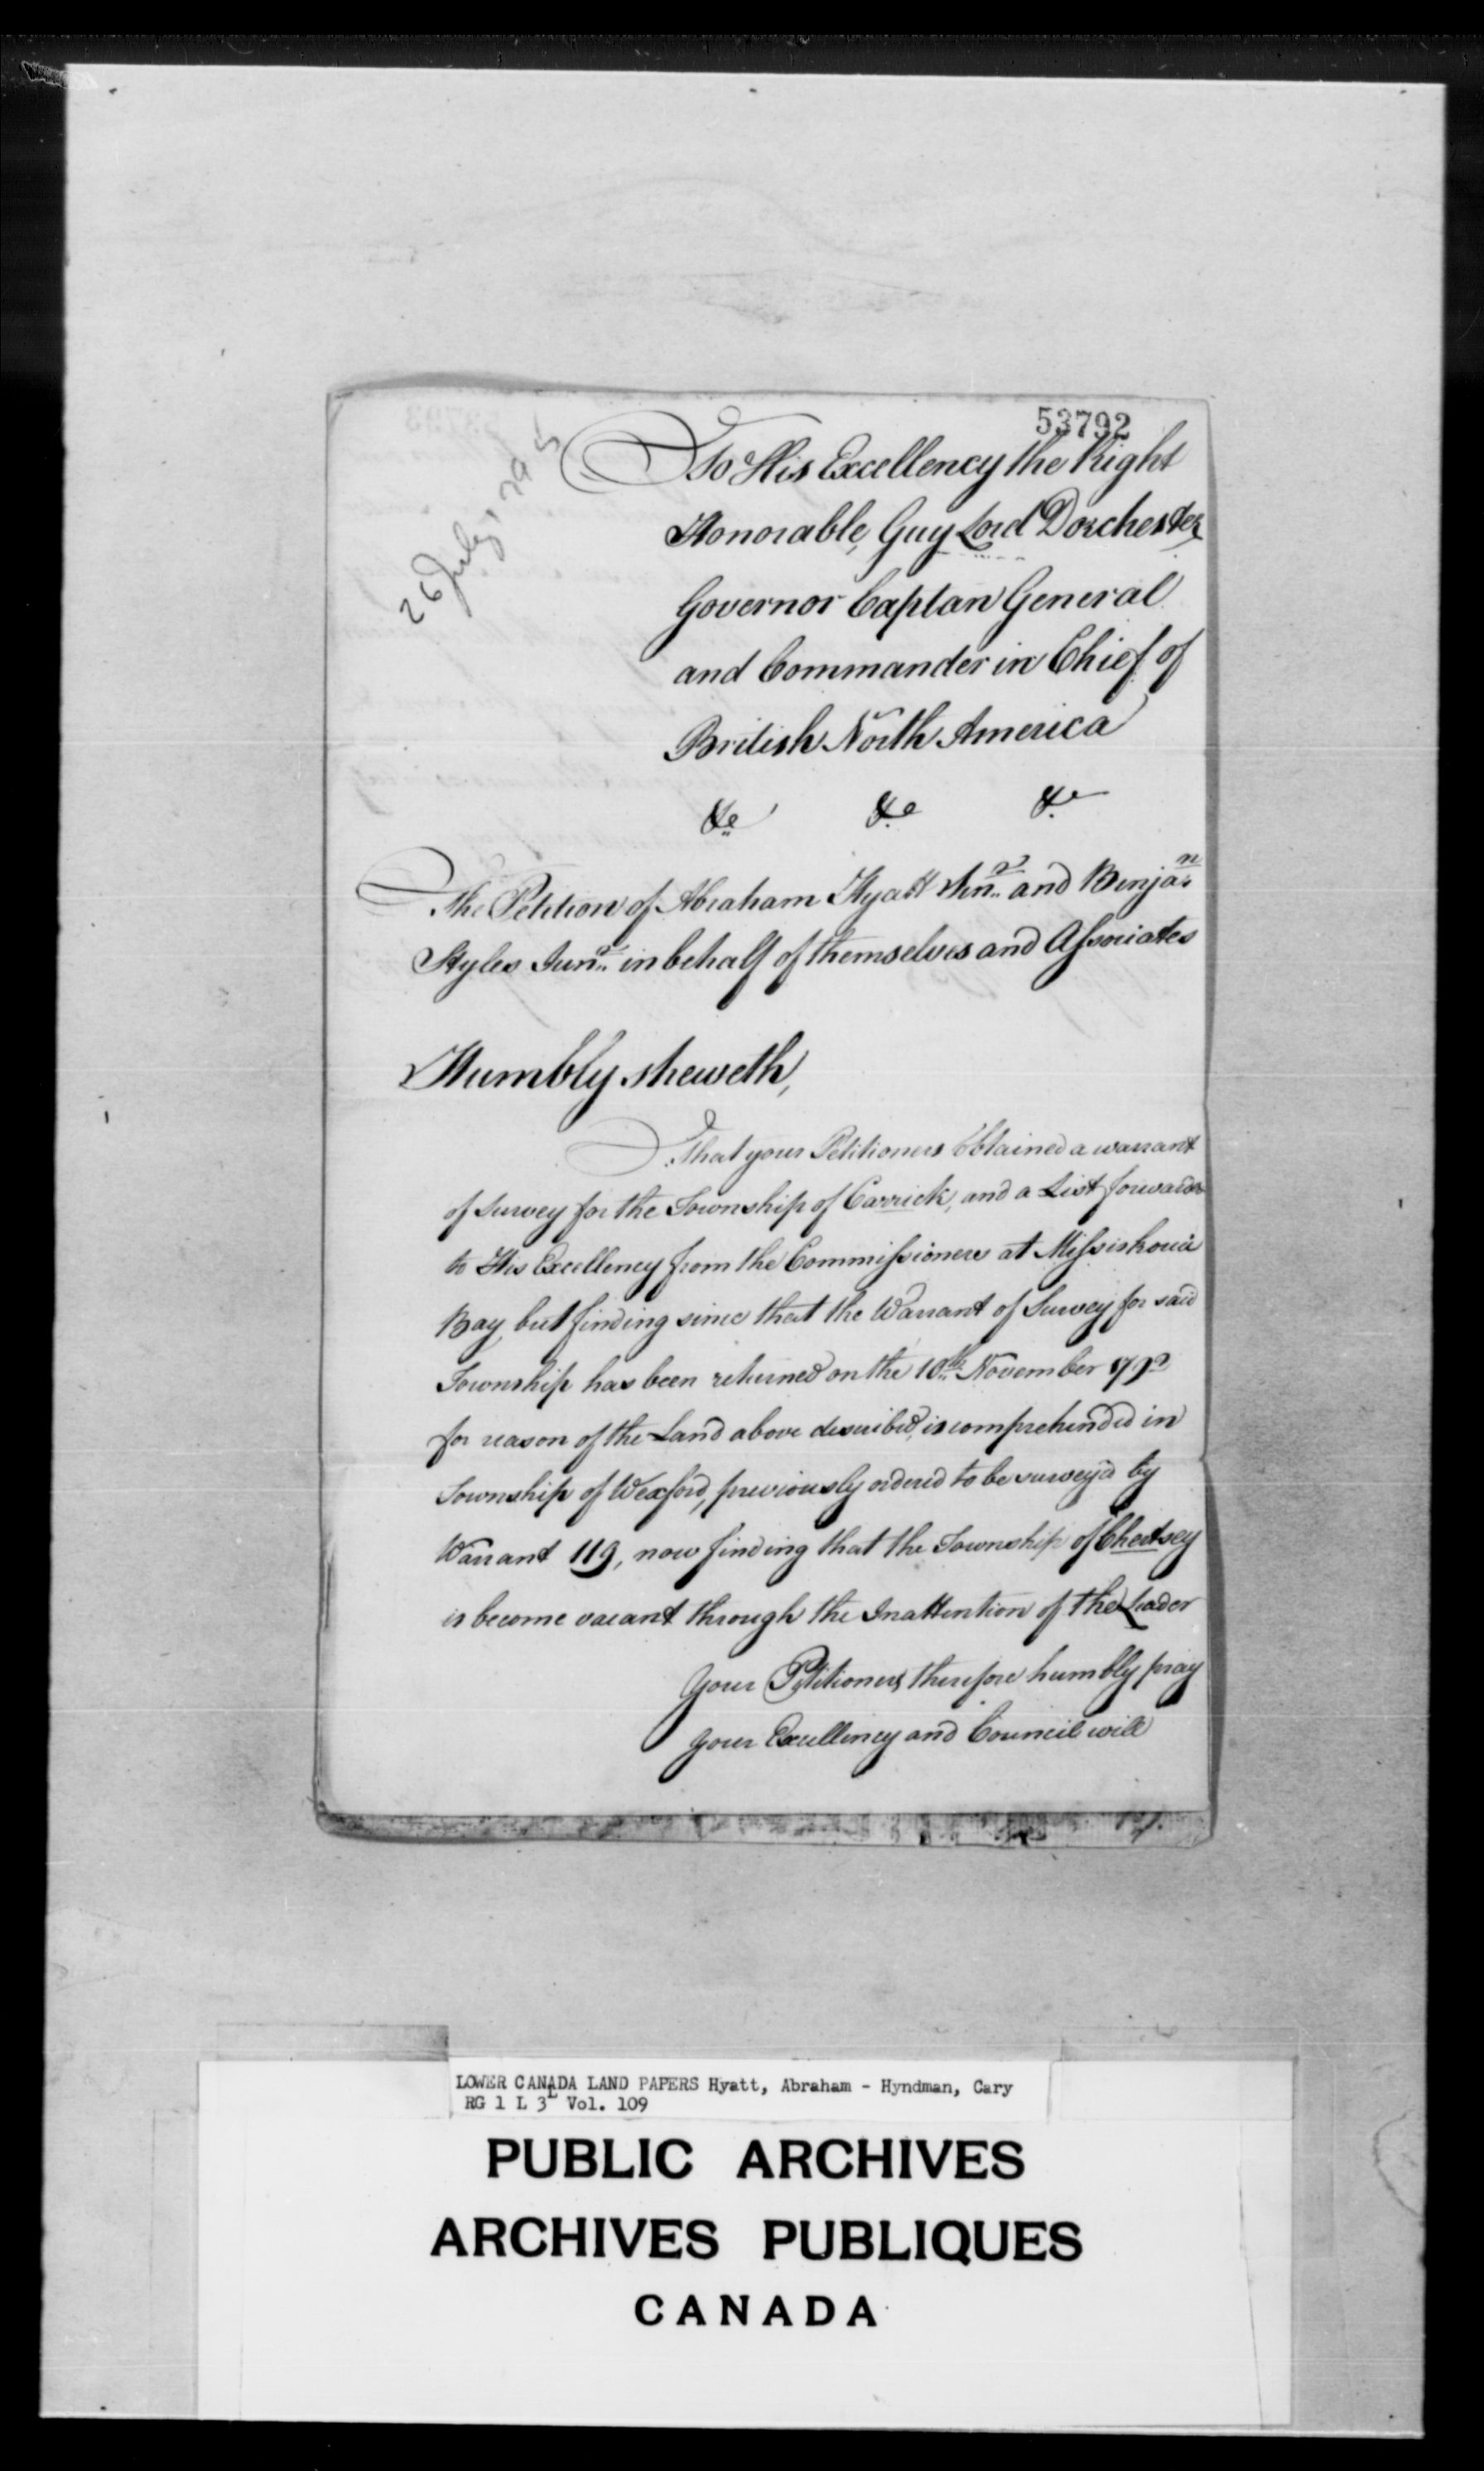 53792
26 July 1795
To His Excellency the Right
Honorable, Guy Lord Dorchester
Governor Captan General
and Commander in Chief of
British North America
&c &c &c
The Petition of Abraham Hyatt Junr. and Benjan.
Styles Junr. in behalf of themselves and Associates
Humbly sheweth,
That your Petitioners Obtained a warrant
of Survey for the Township of Carrick, and a List forwarded
to His Excellency from the Commissioners at Missiskouia
Bay, but finding since that the Warrant of Survey for said
Township has been returned on the 10th. November 179
for reason of the Land above described, is comprehended in
Township of Wexford, previously ordered to be survey'd by
Warrant 119, now finding that the Township of Chertsey
is become vacant through the Inattention of the Leader
Your Petitioners therefore humbly pray
your Excellency and Council will
LOWER CANADA LAND PAPERS Hyatt, Abraham - Hyndman, Cary
RG 1 L 3L Vol. 109
PUBLIC ARCHIVES
ARCHIVES PUBLIQUES
CANADA